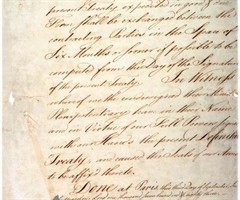 present Treaty expedited in good & due
Form shall be exchanged between the
contracting Parties in the Space of
Six Months or sooner if possible to be
computed from the Day of the Signature
of the present Treaty. In Witness
whereof we the undersigned their Minis
Plenipotentiary have in their Name
and in Virtue of our Full Powers signed
with our Hands the present Definitive
Treaty, and caused the Seals of our Arms
to be affix'd thereto.
Done at Paris, this third Day of